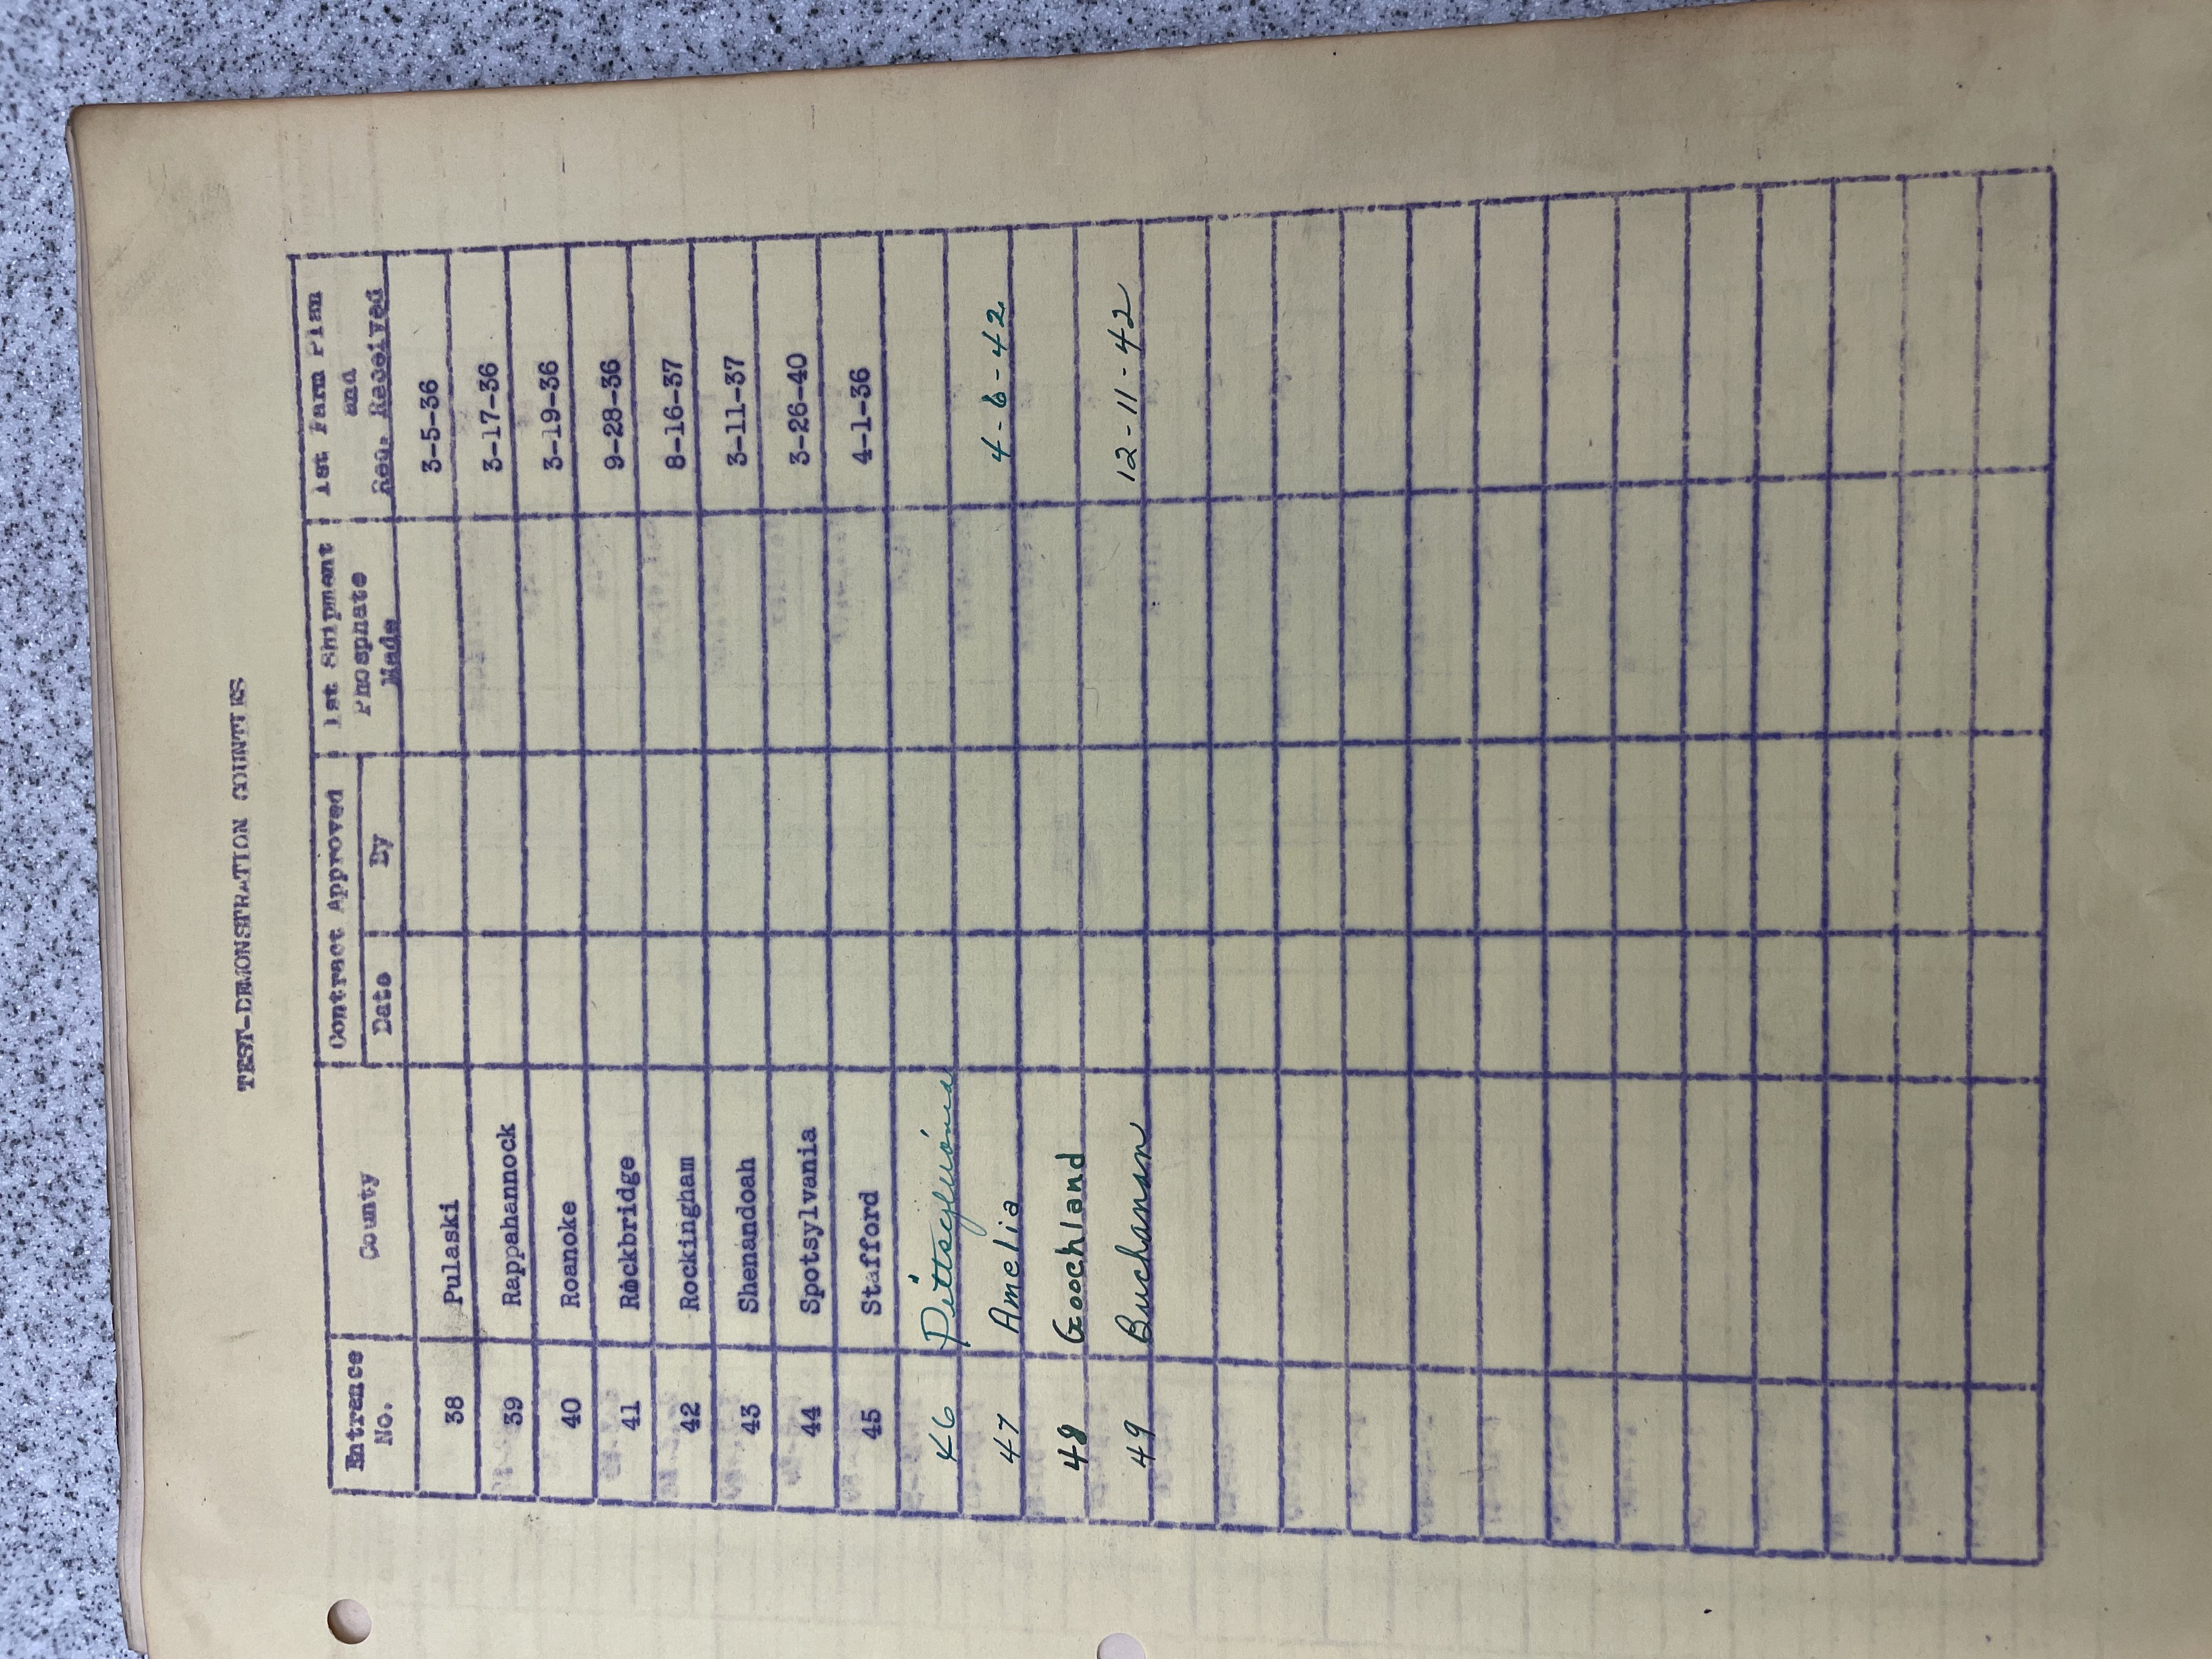 TEST-DEMONSTRATION COUNTIES
Entrance No. County Contract Approved Date By 1st Shipment Phosphate Made 1st Farm Plan and Req. Received
38 Pulaski 3-5-36
39 Rappahannock 3-17-36
40 Roanoke 3-19-36
41 Rockbridge 9-28-36
42 Rockingham 8-16-37
43 Shenandoah 3-11-37
44 Spotsylvania 3-26-40
45 Stafford 4-1-36
46 Pittsylvania
47 Amelia 4-6-42
48 Goochland
49 Buchanan 12-11-42